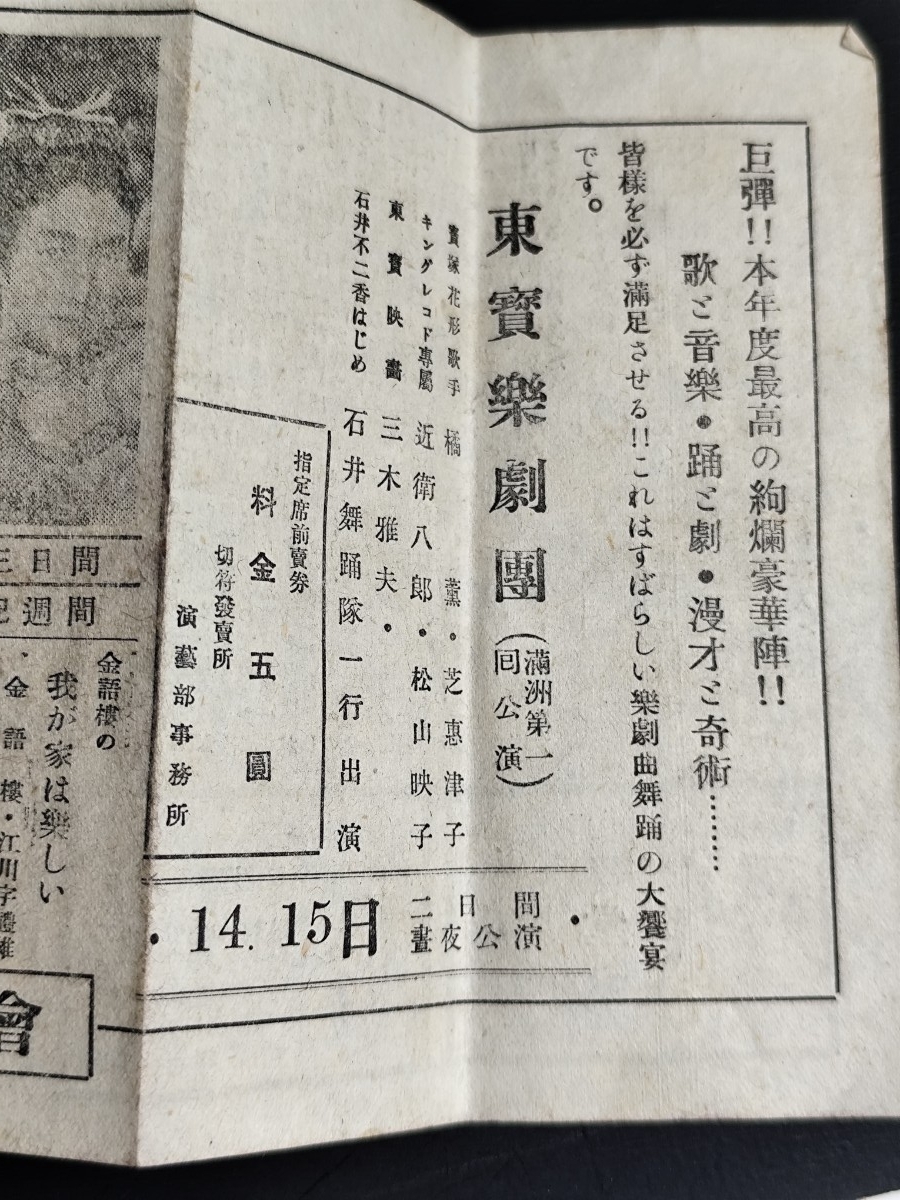 巨彈!!本年度最高の絢爛豪華陣!!
歌と音樂・踊と劇・漫才と奇術………
皆樣を必ず滿足させる!!これはすばらしい樂劇曲舞踊の大饗宴
です。
東寶樂劇團
(滿洲第一
回公演)
寶塚花形歌手 橘 薫・芝惠津子
キングレコド專屬 近衛八郎・松山映子
東寶映畵 三木雅夫・
石井不二香はじめ 石井舞踊隊一行出演
指定席前賣券
料金五圓
切符發賣所
演藝部事務所
・14.15日 二日間 晝夜公演・
三日間
週間
金語樓の
我が家は樂しい
金語樓・江川宇禮雄
會